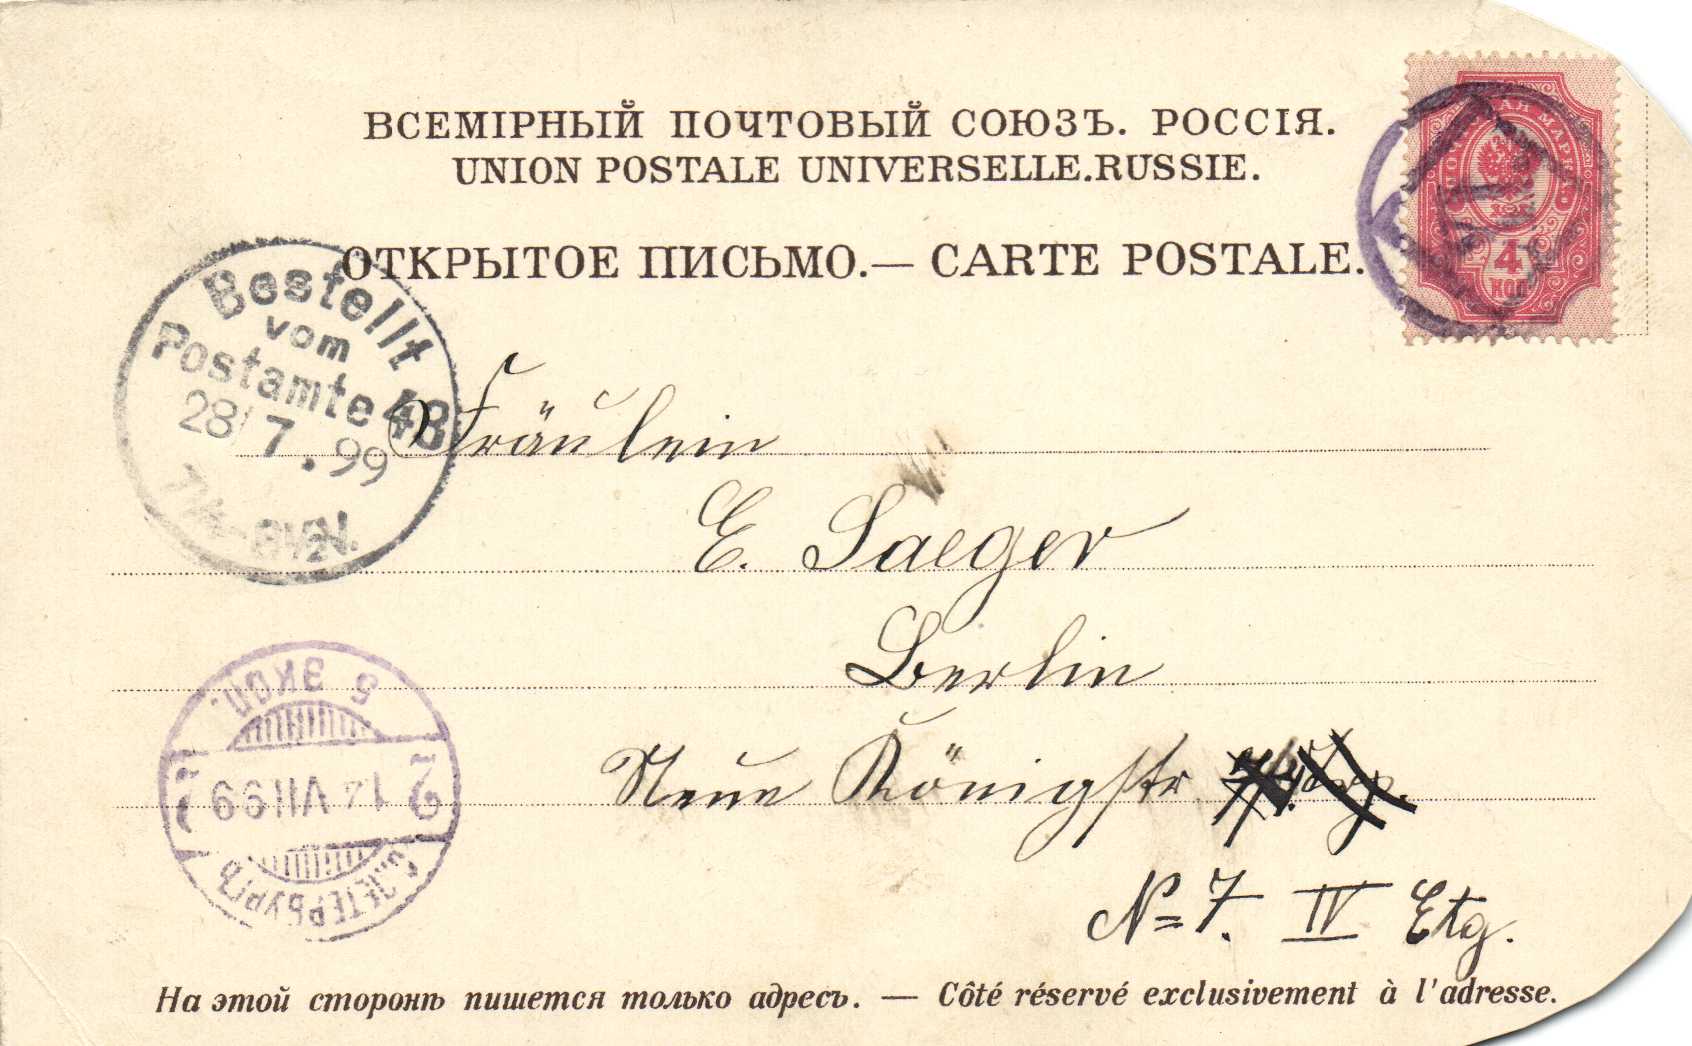 ВСЕМІРНЫЙ ПОЧТОВЫЙ СОЮЗЪ. РОССІЯ.
UNION POSTALE UNIVERSELLE.RUSSIE.
ОТКРЫТОЕ ПИСЬМО.— CARTE POSTALE.
4
КОП.
Bestellt
vom
Postamte 48
28/7.99
7½-8½N.
Fräulein
E. Saeger
Berlin
Neue Königstr.
№ 7. IV Etg.
5 ЭКСП.
VII99
С.ПЕТЕРБУРГЪ
На этой сторонѣ пишется только адресъ. — Côté réservé exclusivement à l'adresse.